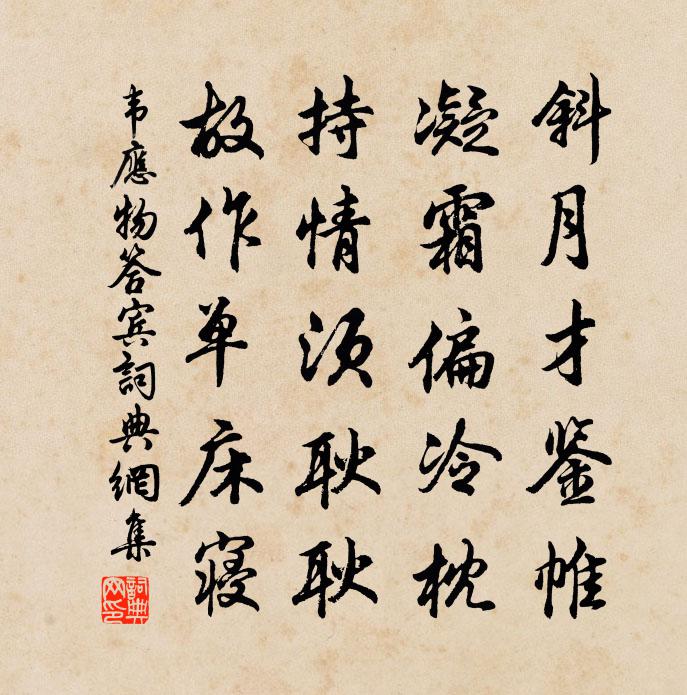 斜月才鉴帷
凝霜偏冷枕
持情须耿耿
故作单床寝
韦應物答宾詞典網集
詞典网印